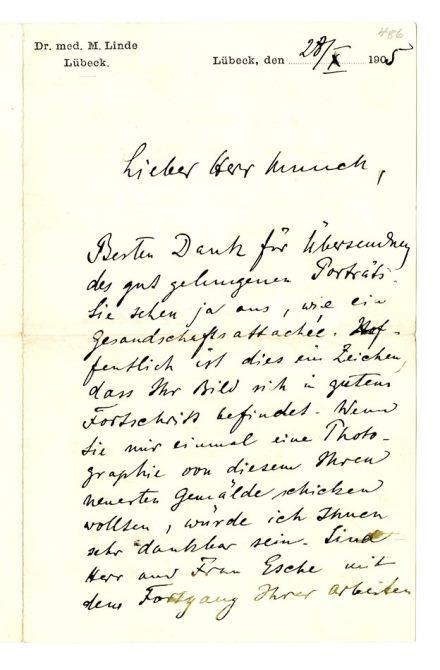 486
Dr. med. M. Linde
Lübeck.
Lübeck, den 28/X 1905
Lieber Herr Munch,
Besten Dank für Übersendung
des gut gelungenen Porträts.
Sie sehen ja aus, wie ein
Gesandschaftsattaché. Hof-
fentlich ist dies ein Zeichen,
dass Ihr Bild sich in gutem
Fortschritt befindet. Wenn
Sie mir einmal eine Photo-
graphie von diesem Ihren
neuesten Gemälde schicken
wollten, würde ich Ihnen
sehr dankbar sein. Sind
Herr und Frau Esche mit
dem Fortgang Ihrer Arbeiten